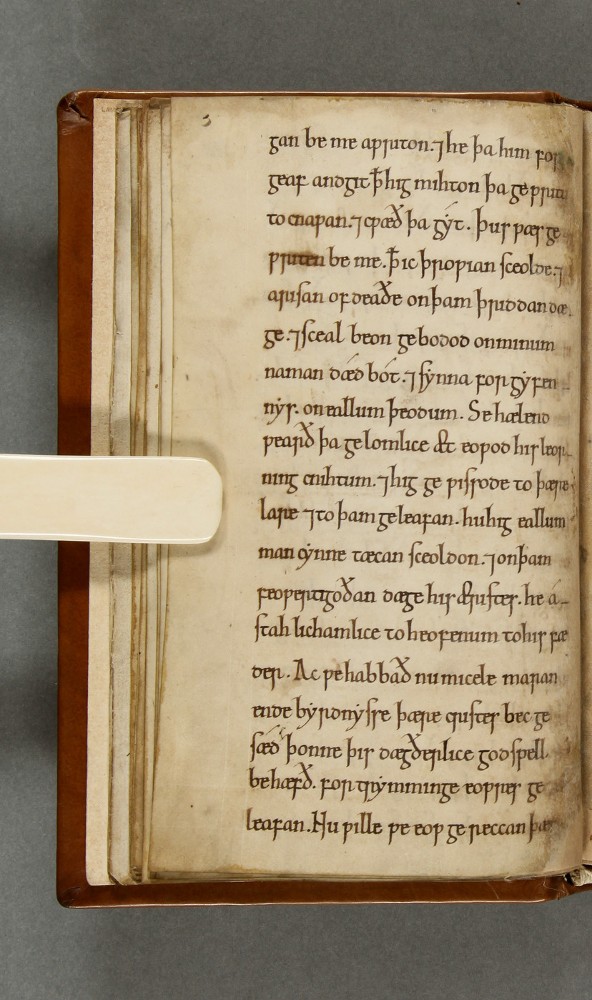 gan be me aƿriton. ⁊he þa him for
geaf andgit ꝥ hig mihton þa ge ƿritu
to cnapan. ⁊cƿæð þa gýt. Þus ƿæs ge
ƿriten be me. ꝥ ic þroƿian sceolde. ⁊
arisan of deaðe on þam þriddan dæ
ge. ⁊sceal beon gebodod on minum
naman dǽd bót. ⁊synna forgyfen
nys. on eallum þeodum. Se hælend
ƿearð þa gelomlice æt eoƿod his leor
ning cnihtum. ⁊hig ge ƿissode to þære
lare ⁊to þam geleafan. hu hig eallum
man cynne tæcan sceoldon. ⁊on þam
feoƿertigoðan dæge his æristes. he á
stah lichamlice to heofenum to his fæ
der. Ac ƿe habbað nu micele maran
ende byrdnysse þære cristes bec ge
sæd þonne þis dægðerlice godspell
behæfð. for trymminge eoƿres ge
leafan. Nu ƿille ƿe eoƿ gereccan þæs